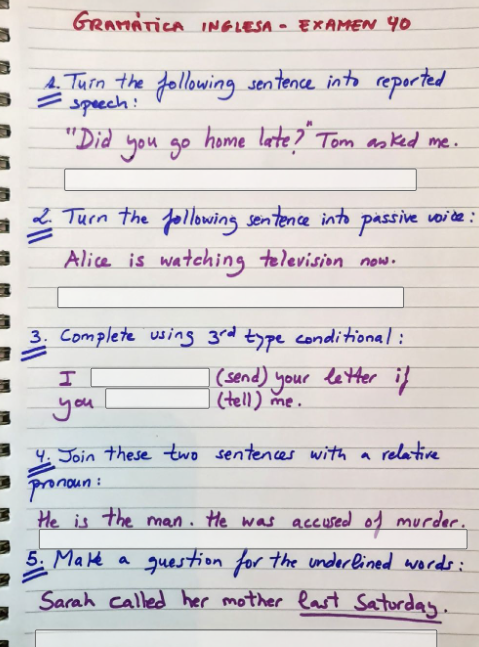 GRAMÁTICA INGLESA - EXAMEN 40
1. Turn the following sentence into reported
speech:
"Did you go home late?" Tom asked me.
2. Turn the following sentence into passive voice:
Alice is watching television now.
3. Complete using 3rd type conditional:
I (send) your letter if
you (tell) me.
4. Join these two sentences with a relative
pronoun:
He is the man. He was accused of murder.
5. Make a question for the underlined words:
Sarah called her mother last Saturday.